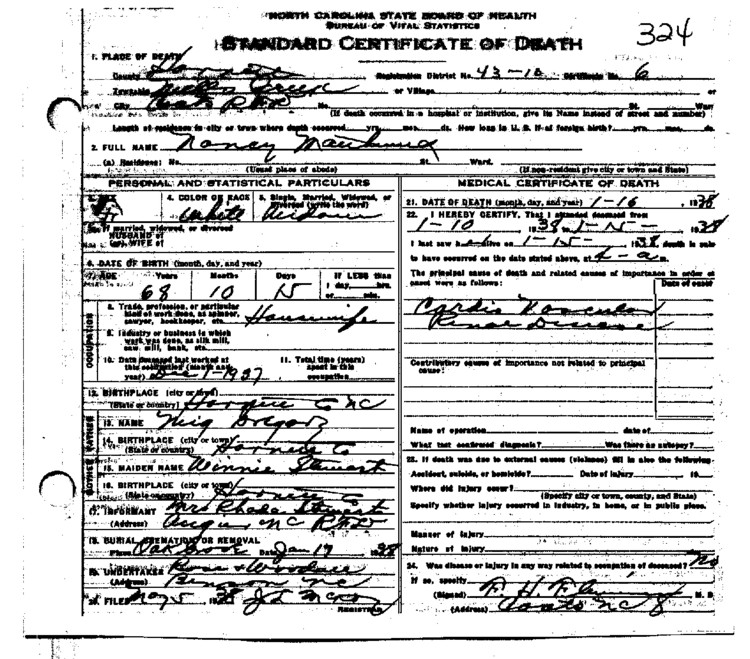 NORTH CAROLINA STATE BOARD OF HEALTH
BUREAU OF VITAL STATISTICS
STANDARD CERTIFICATE OF DEATH
324
1. PLACE OF DEATH
County Registration District No. 43-10 Certificate No. 6
Township Creek or Village or
City Coats RFD No. St. Ward
(If death occurred in a hospital or institution, give its Name instead of street and number)
Length of residence in city or town where death occurred yrs. mos. ds. How long in U. S. if of foreign birth? yrs. mos. ds.
2. FULL NAME Nancy
(a) Residence: No. St. Ward.
(Usual place of abode) (If non-resident give city or town and State)
PERSONAL AND STATISTICAL PARTICULARS
3. SEX 4. COLOR OR RACE 5. Single, Married, Widowed, or Divorced (write the word)
White Widow
If married, widowed, or divorced
HUSBAND of
(or) WIFE of
6. DATE OF BIRTH (month, day, and year)
7. AGE Years Months Days IF LESS than 1 day, hrs. or min.
68 10 15
8. Trade, profession, or particular kind of work done, as spinner, sawyer, bookkeeper, etc. Housewife
9. Industry or business in which work was done, as silk mill, saw mill, bank, etc.
10. Date deceased last worked at this occupation (month and year) Dec 1-1937 11. Total time (years) spent in this occupation
OCCUPATION
12. BIRTHPLACE (city or town)
(State or country) Co NC
FATHER
13. NAME Gregory
14. BIRTHPLACE (city or town)
(State or country) Co
MOTHER
15. MAIDEN NAME Winnie Stewart
16. BIRTHPLACE (city or town)
(State or country) Co
17. INFORMANT Mrs Rhoda Stewart
(Address) Angier NC RFD
18. BURIAL, CREMATION OR REMOVAL
Place Oak Grove Date Jan 17 1938
19. UNDERTAKER Rose &
(Address) Benson NC
20. FILED 1938
REGISTRAR
MEDICAL CERTIFICATE OF DEATH
21. DATE OF DEATH (month, day, and year) 1-16, 1938
22. I HEREBY CERTIFY, That I attended deceased from
1-10 1938 to 1-15- 1938
I last saw h alive on 1-15-, 1938 death is said
to have occurred on the date stated above, at m.
The principal cause of death and related causes of importance in order of onset were as follows: Date of onset
Cardio Vascular
Renal Disease
Contributory causes of importance not related to principal cause:
Name of operation date of
What test confirmed diagnosis? Was there an autopsy?
23. If death was due to external causes (violence) fill in also the following:
Accident, suicide, or homicide? Date of injury 19
Where did injury occur?
(Specify city or town, county, and State)
Specify whether injury occurred in industry, in home, or in public place.
Manner of injury
Nature of injury
24. Was disease or injury in any way related to occupation of deceased? No
If so, specify
(Signed) F. H. M. D.
(Address) Coats NC